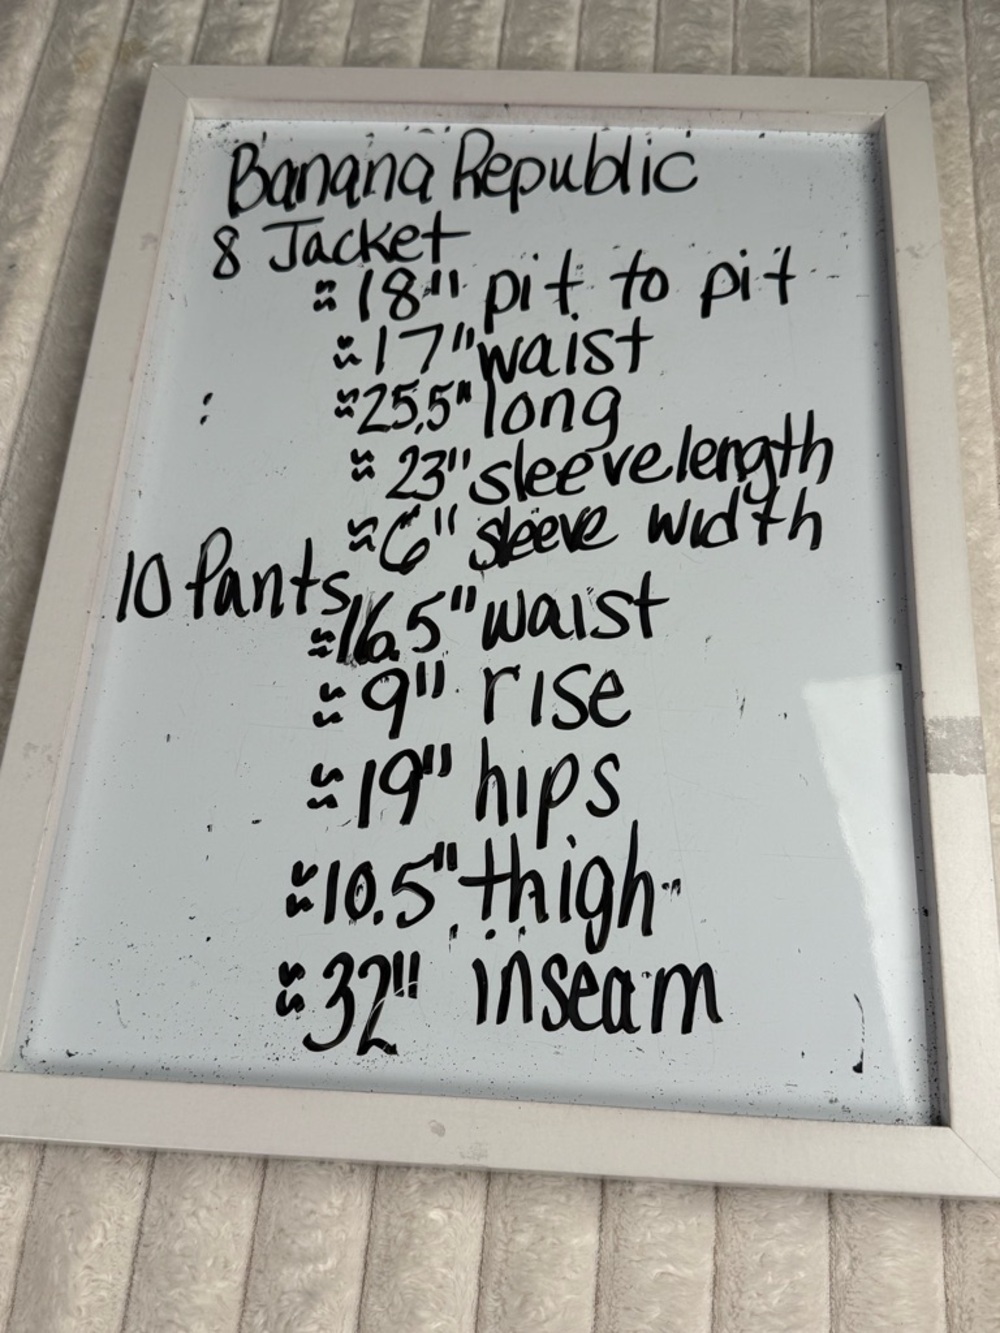 Banana Republic
8 Jacket
≈18" pit to pit
≈17" waist
≈25.5" long
≈23" sleeve length
≈6" sleeve width
10 Pants
≈16.5" waist
≈9" rise
≈19" hips
≈10.5" thigh
≈32" inseam